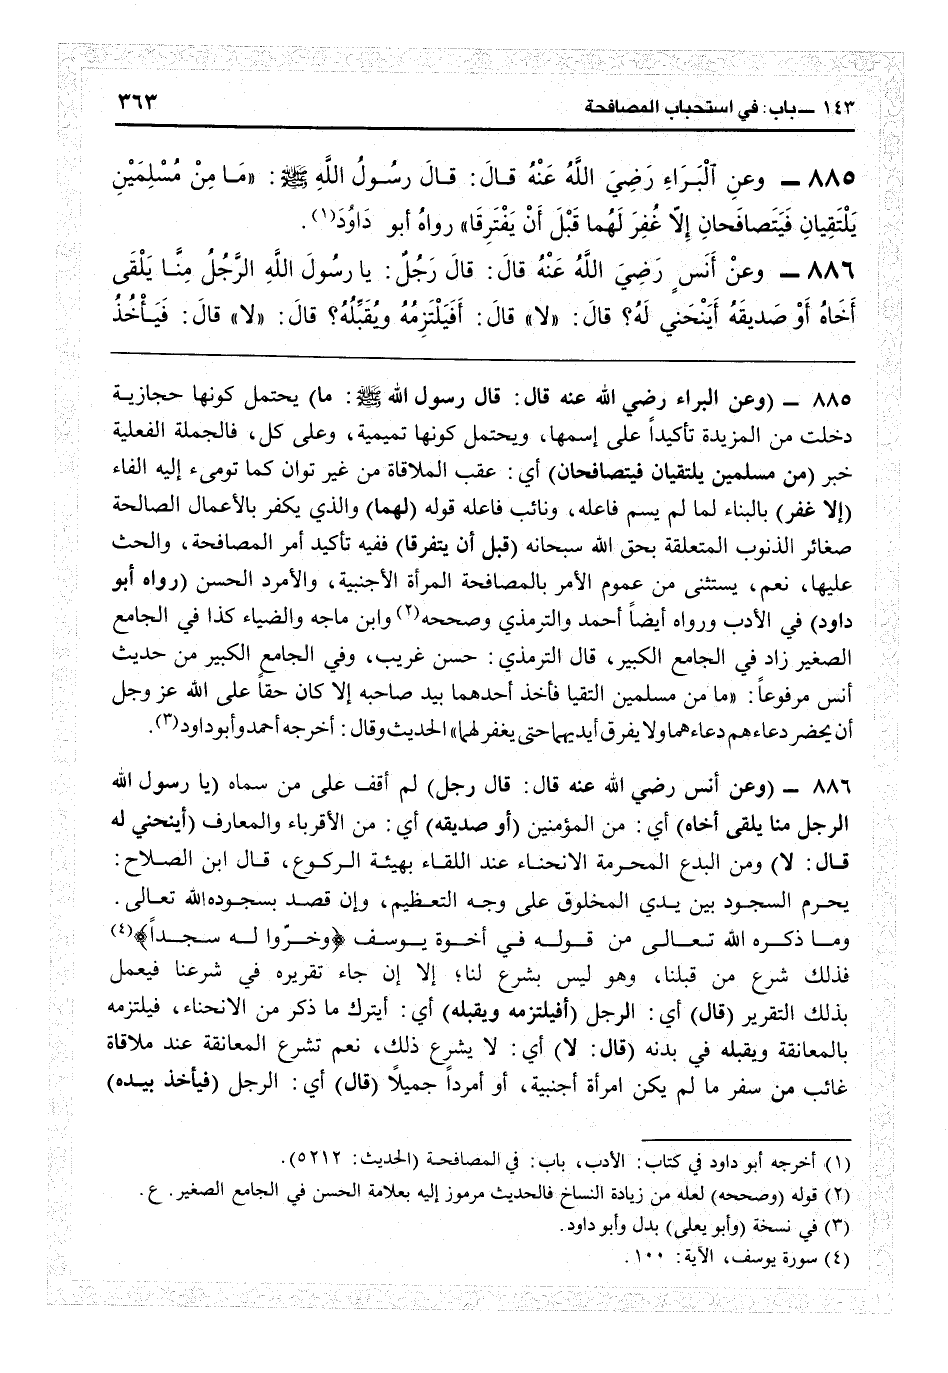 ١٤٣ ــ باب: في استحباب المصافحة
٣٦٣
٨٨٥ ــ وعنِ ٱلْبَرَاءِ رَضِيَ اللَّهُ عَنْهُ قَالَ: قَالَ رَسُولُ اللَّهِ ﷺ: «مَا مِنْ مُسْلِمَيْنِ
يَلْتَقِيانِ فَيَتَصافَحانِ إلّا غُفِرَ لَهُما قَبْلَ أَنْ يَفْتَرِقَا» رواهُ أبو دَاوُدَ(١).
٨٨٦ ــ وعنْ أَنَسٍ رَضِيَ اللَّهُ عَنْهُ قالَ: قالَ رَجُلٌ: يا رسُولَ اللَّهِ الرَّجُلُ مِنَّا يَلْقَى
أَخَاهُ أَوْ صَديقَهُ أَيَنْحَني لَهُ؟ قالَ: «لا» قالَ: أَفَيَلْتَزِمُهُ ويُقَبِّلُهُ؟ قالَ: «لا» قالَ: فَيَأْخُذُ
٨٨٥ ــ (وعن البراء رضي الله عنه قال: قال رسول الله ﷺ: ما) يحتمل كونها حجازية
دخلت من المزيدة تأكيداً على إسمها، ويحتمل كونها تميمية، وعلى كل، فالجملة الفعلية
خبر (من مسلمين يلتقيان فيتصافحان) أي: عقب الملاقاة من غير توان كما تومىء إليه الفاء
(إلا غفر) بالبناء لما لم يسم فاعله، ونائب فاعله قوله (لهما) والذي يكفر بالأعمال الصالحة
صغائر الذنوب المتعلقة بحق الله سبحانه (قبل أن يتفرقا) ففيه تأكيد أمر المصافحة، والحث
عليها، نعم، يستثنى من عموم الأمر بالمصافحة المرأة الأجنبية، والأمرد الحسن (رواه أبو
داود) في الأدب ورواه أيضاً أحمد والترمذي وصححه(٢) وابن ماجه والضياء كذا في الجامع
الصغير زاد في الجامع الكبير، قال الترمذي: حسن غريب، وفي الجامع الكبير من حديث
أنس مرفوعاً: «ما من مسلمين التقيا فأخذ أحدهما بيد صاحبه إلا كان حقاً على الله عز وجل
أن يحضر دعاءهم دعاءهما ولا يفرق أيديهما حتى يغفر لهما» الحديث وقال: أخرجه أحمد وأبو داود(٣).
٨٨٦ ــ (وعن أنس رضي الله عنه قال: قال رجل) لم أقف على من سماه (يا رسول الله
الرجل منا يلقى أخاه) أي: من المؤمنين (أو صديقه) أي: من الأقرباء والمعارف (أينحني له
قال: لا) ومن البدع المحرمة الانحناء عند اللقاء بهيئة الركوع، قال ابن الصلاح:
يحرم السجود بين يدي المخلوق على وجه التعظيم، وإن قصد بسجوده الله تعالى.
وما ذكره الله تعالى من قوله في أخوة يوسف ﴿وخرّوا له سجداً﴾(٤)
فذلك شرع من قبلنا، وهو ليس بشرع لنا؛ إلا إن جاء تقريره في شرعنا فيعمل
بذلك التقرير (قال) أي: الرجل (أفيلتزمه ويقبله) أي: أيترك ما ذكر من الانحناء، فيلتزمه
بالمعانقة ويقبله في بدنه (قال: لا) أي: لا يشرع ذلك، نعم تشرع المعانقة عند ملاقاة
غائب من سفر ما لم يكن امرأة أجنبية، أو أمرداً جميلاً (قال) أي: الرجل (فيأخذ بيده)
(١) أخرجه أبو داود في كتاب: الأدب، باب: في المصافحة (الحديث: ٥٢١٢).
(٢) قوله (وصححه) لعله من زيادة النساخ فالحديث مرموز إليه بعلامة الحسن في الجامع الصغير. ع.
(٣) في نسخة (وأبو يعلى) بدل وأبو داود.
(٤) سورة يوسف، الآية: ١٠٠.